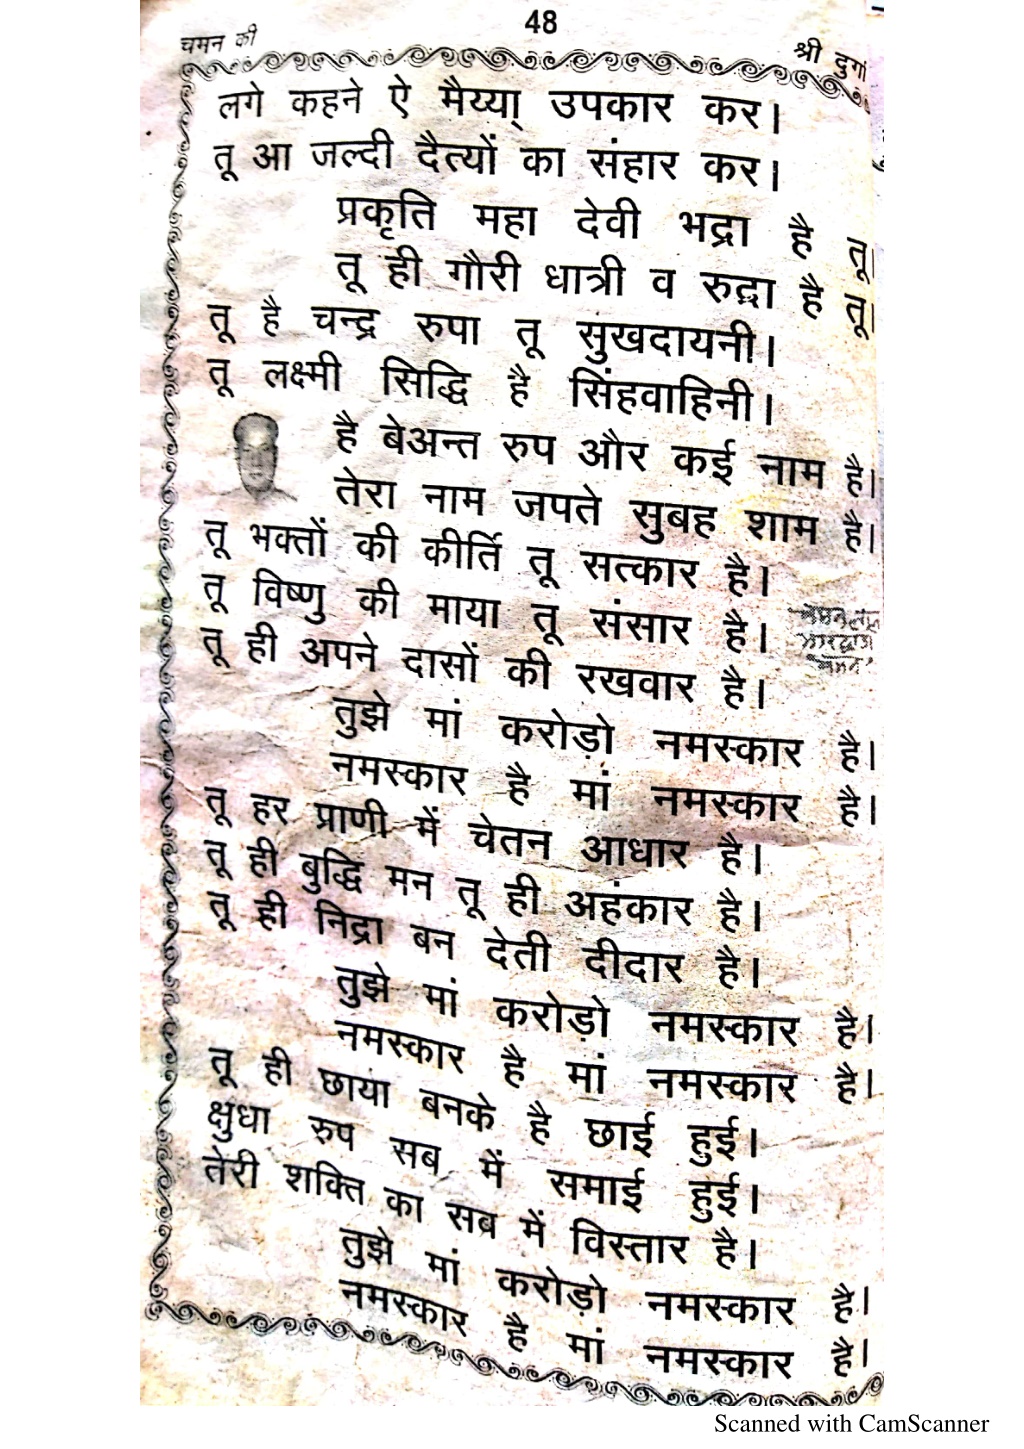 48
चमन की
श्री दुर्गा
लगे कहने ऐ मैय्या् उपकार कर।
तू आ जल्दी दैत्यों का संहार कर।
प्रकृति महा देवी भद्रा है तू।
तू ही गौरी धात्री व रुद्रा है तू।
तू है चन्द्र रुपा तू सुखदायनी।
तू लक्ष्मी सिद्धि है सिंहवाहिनी।
है बेअन्त रुप और कई नाम है।
तेरा नाम जपते सुबह शाम है।
तू भक्तों की कीर्ति तू सत्कार है।
तू विष्णु की माया तू संसार है।
तू ही अपने दासों की रखवार है।
तुझे मां करोड़ो नमस्कार है।
नमस्कार है मां नमस्कार है।
तू हर प्राणी में चेतन आधार है।
तू ही बुद्धि मन तू ही अहंकार है।
तू ही निद्रा बन देती दीदार है।
तुझे मां करोड़ो नमस्कार है।
नमस्कार है मां नमस्कार है।
तू ही छाया बनके है छाई हुई।
क्षुधा रुप सब में समाई हुई।
तेरी शक्ति का सब में विस्तार है।
तुझे मां करोड़ो नमस्कार है।
नमस्कार है मां नमस्कार है।
Scanned with CamScanner